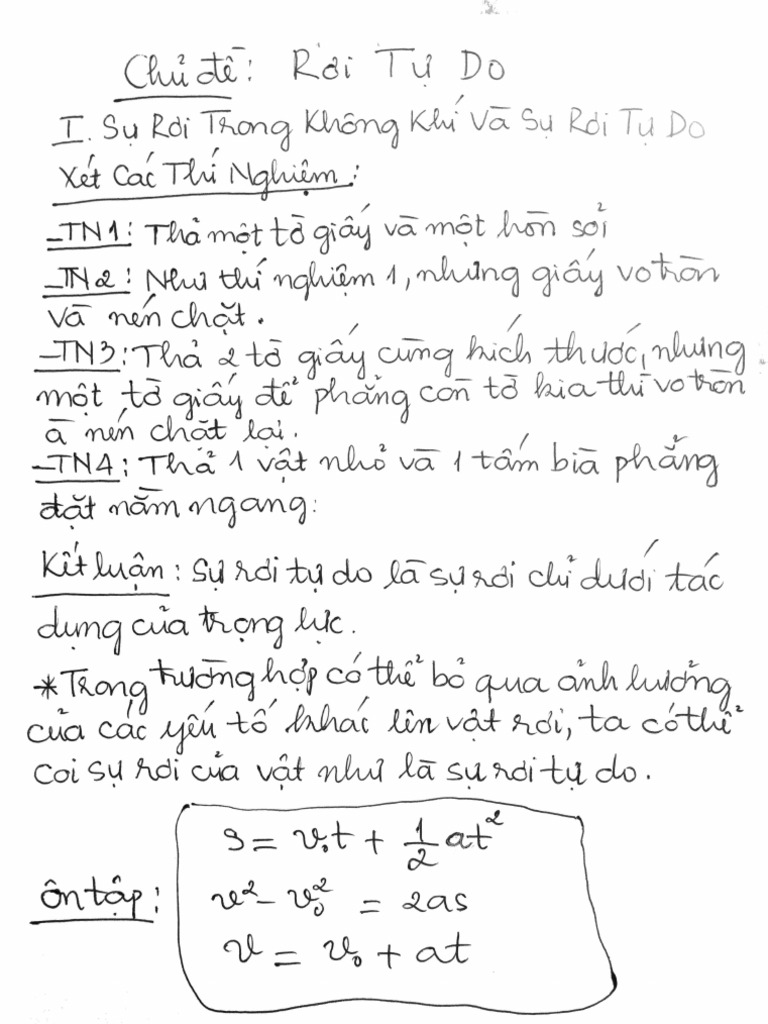 Chủ đề: Rơi Tự Do
I. Sự Rơi Trong Không Khí và Sự Rơi Tự Do
Xét Các Thí Nghiệm:
-TN1: Thả một tờ giấy và một hòn sỏi
-TN2: Như thí nghiệm 1, nhưng giấy vo tròn
và nén chặt.
-TN3: Thả 2 tờ giấy cùng kích thước, nhưng
một tờ giấy để phẳng còn tờ kia thì vo tròn
à nén chặt lại.
-TN4: Thả 1 vật nhỏ và 1 tấm bìa phẳng
đặt nằm ngang:
Kết luận: Sự rơi tự do là sự rơi chỉ dưới tác
dụng của trọng lực.
*Trong trường hợp có thể bỏ qua ảnh hưởng
của các yếu tố khác lên vật rơi, ta có thể
coi sự rơi của vật như là sự rơi tự do.
s = v₀t + 1/2 at²
Ôn tập: v² - v₀² = 2as
v = v₀ + at